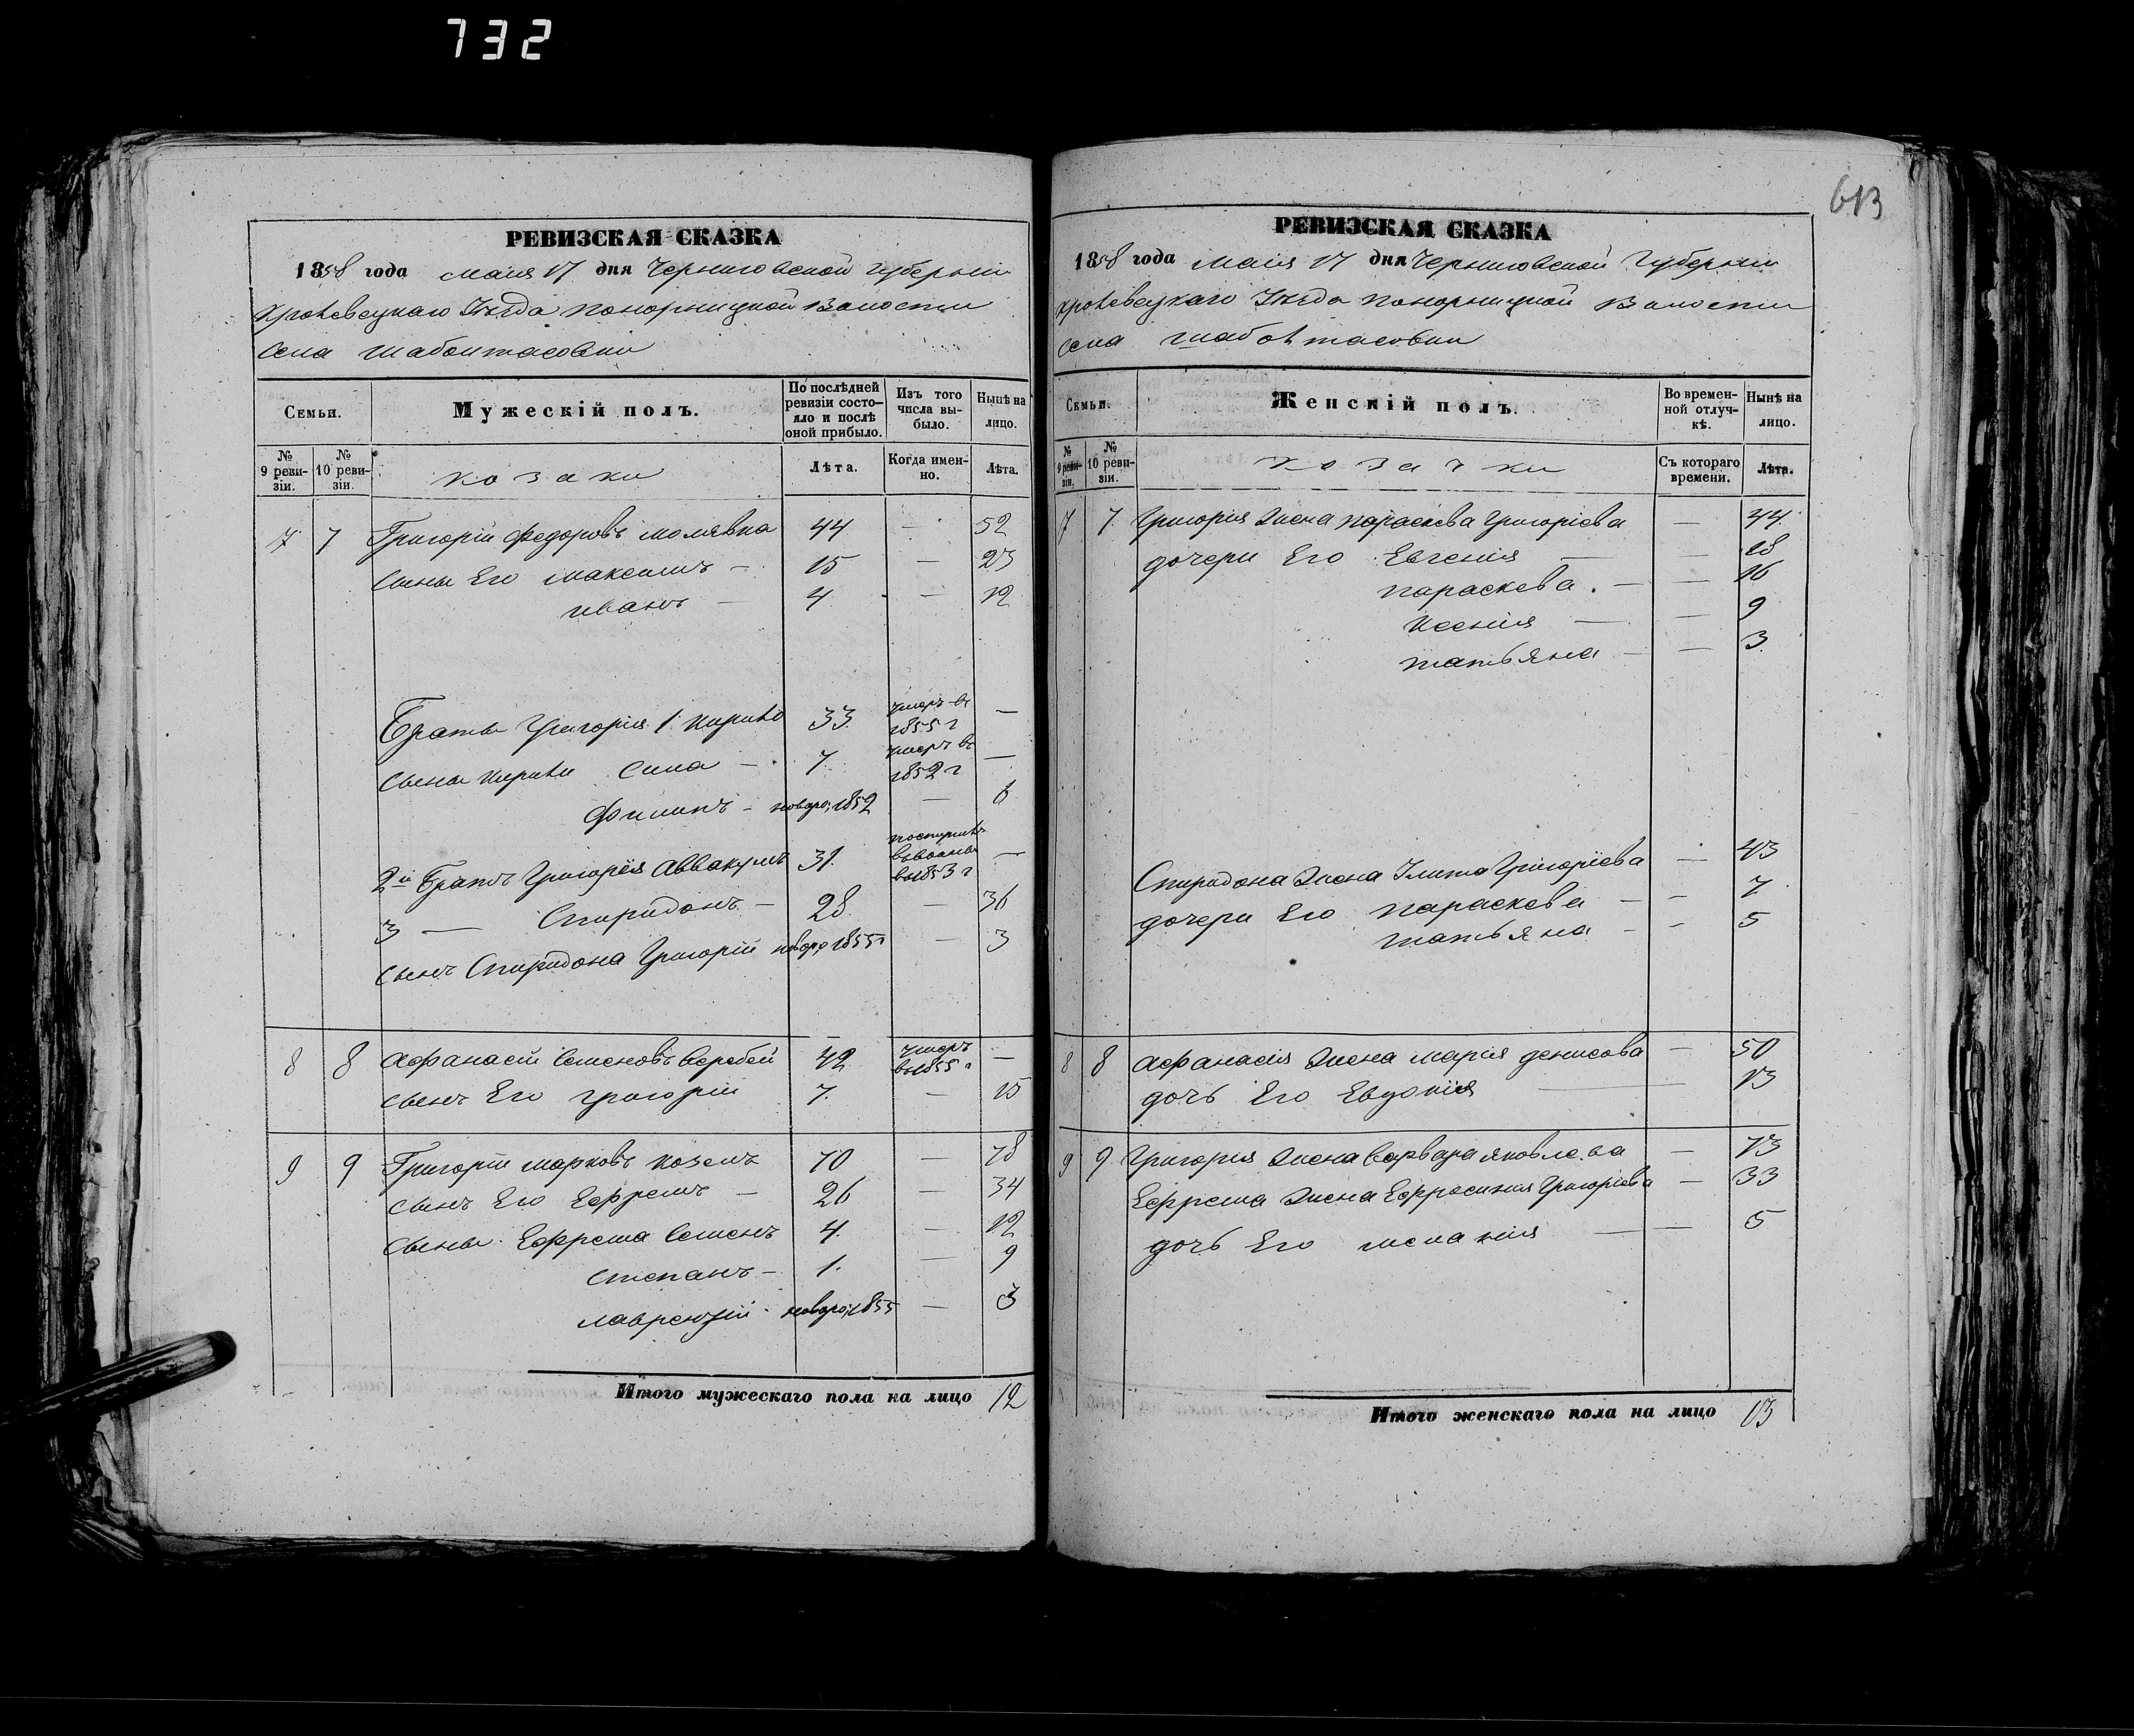 732
613
РЕВИЗСКАЯ СКАЗКА
1858 года маия 17 дня Черниговской губерніи
кролевецкаго Уѣзда понорницкой волости
села шабалтасовки
Семьи.
Мужескій полъ.
По послѣдней ревизіи состояло и послѣ оной прибыло.
Изъ того числа выбыло.
Нынѣ на лицо.
№ 9 ревизіи.
№ 10 ревизіи.
козаки
Лѣта.
Когда именно.
Лѣта.
7 7 Григорій Федоровъ молявка 44 — 52
сыны Его максимъ — 15 — 23
иванъ — 4 — 12
Братья Григорія 1. кирило 33 умеръ въ 1855 г —
сыны кирила сила — 7 умеръ въ 1852 г —
филипъ — новоро; 1852 — 6
2й Братъ Григорія Аввакумъ 31. поступилъ въ 1853 г —
3 — Спиридонъ — 28 — 36
сынъ Спиридона Григорій новоро; 1855 — 3
8 8 Афанасій Семеновъ Серебей 42 умеръ в 1855 г —
сынъ Его григорій 7. — 15
9 9 Григорій марковъ козелъ 70 — 78
сынъ Его Ефремъ — 26 — 34
сыны Ефрема Семенъ 4. — 12
степанъ — 1. — 9
лаврентій — новоро; 1855 — 3
Итого мужескаго пола на лицо 12
РЕВИЗСКАЯ СКАЗКА
1858 года маия 17 дня Черниговской Губерніи
кролевецкаго Уѣзда понорницкой волости
села шаболтасовки
Семьи.
Женскій полъ.
Во временной отлучкѣ.
Нынѣ на лицо.
№ 9 ревизіи.
№ 10 ревизіи.
козачки
Съ котораго времени.
Лѣта.
7 7. Григорія Жена параскева Григоріева — 44.
дочери Его Евгенія — — 18
параскева. — — 16
ксенія — — 9
татьяна — — 3
Спиридона Жена Улита Григоріева — 43
дочери Его параскева — — 7
татьяна — — 5
8 8 Афанасія Жена марія денисова — 50
дочь Его Евдокія — — 13
9 9. Григорія Жена варвара яковлева — 73
Ефрема Жена Ефросинія Григоріева — 33
дочь Его меланія — — 5
Итого женскаго пола на лицо 13